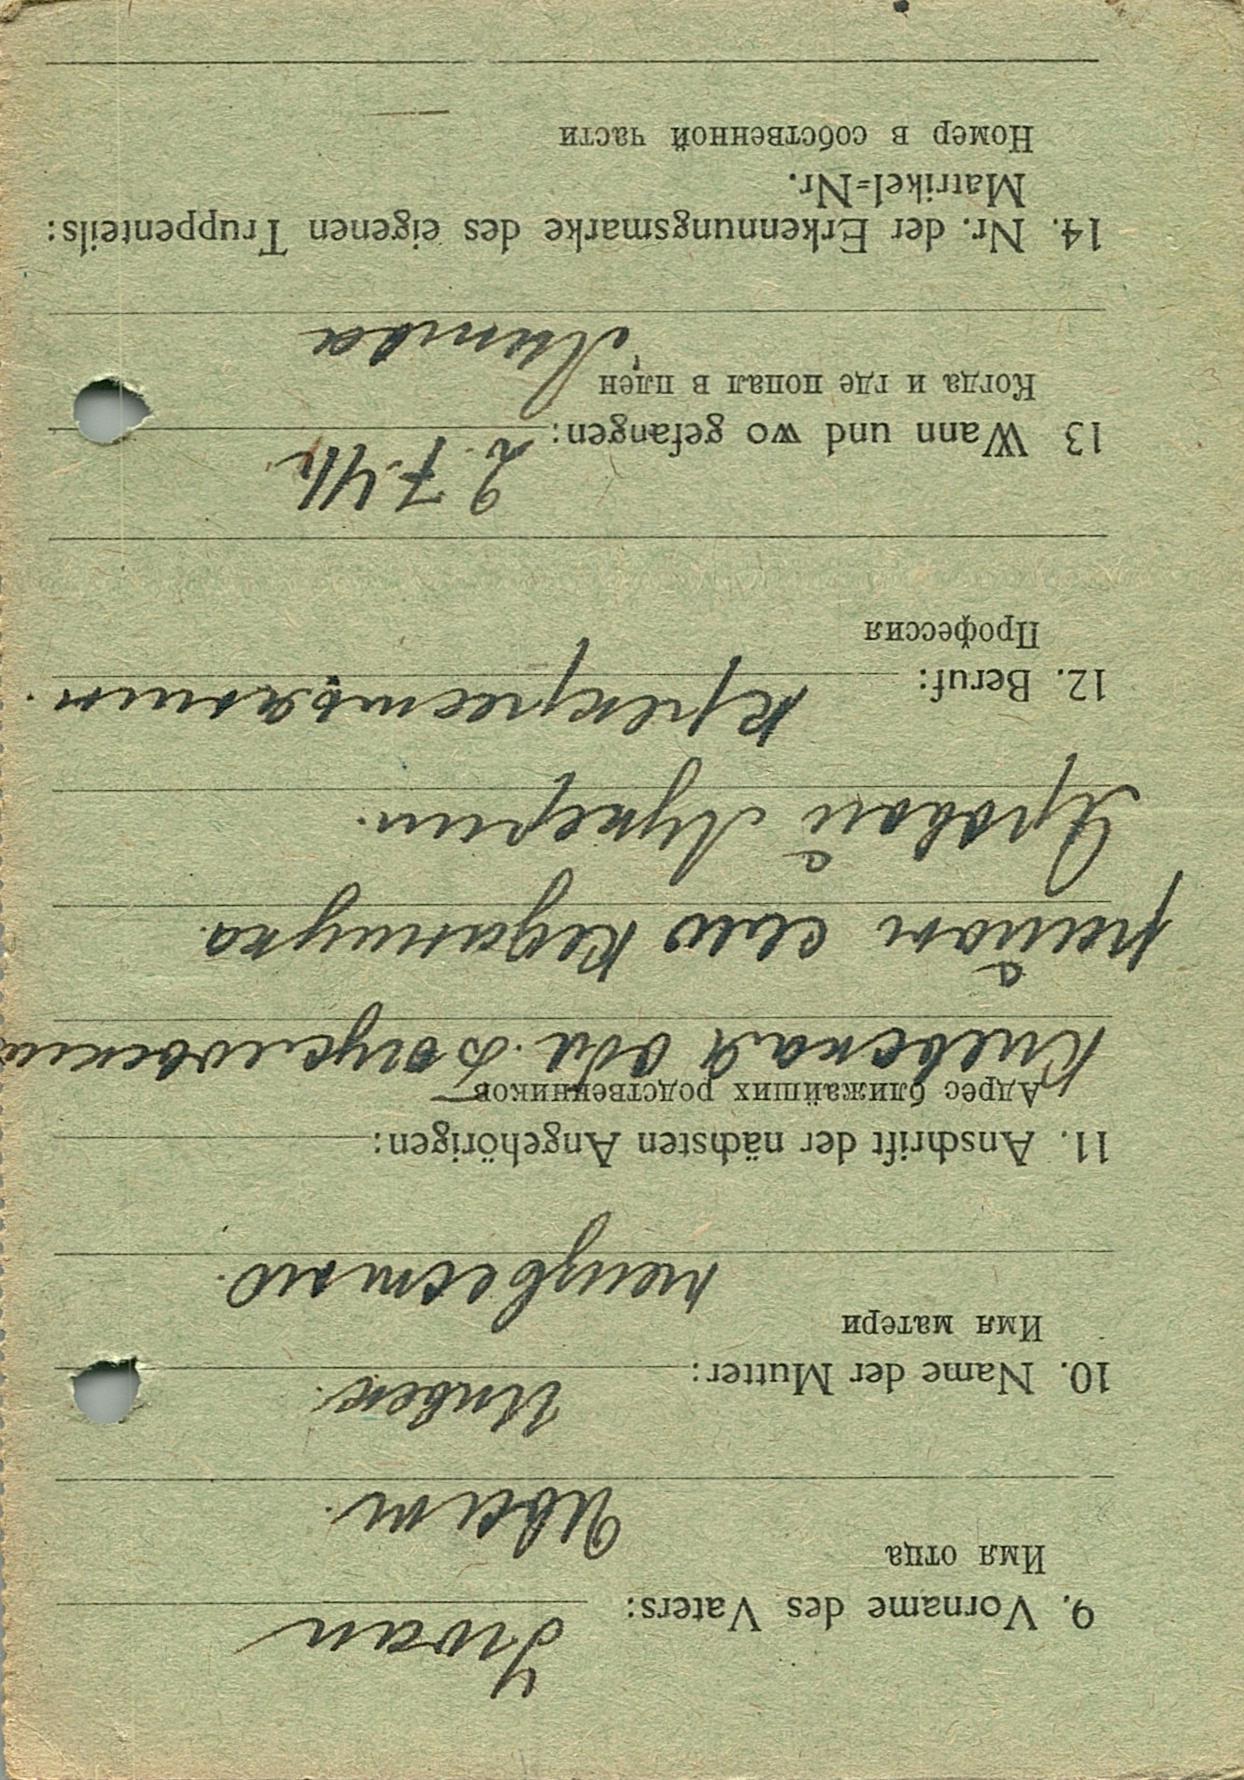 9. Vorname des Vaters: Iwan
Имя отца
Иван.
10. Name der Mutter:
Имя матери
неизвестно.
11. Anschrift der nächsten Angehörigen:
Адрес ближайших родственников
Киевская обл.
район село
Яровой
12. Beruf:
Профессия
13 Wann und wo gefangen: 2.7.41
Когда и где попал в плен
Литва
14. Nr. der Erkennungsmarke des eigenen Truppenteils:
Matrikel=Nr.
Номер в собственной части